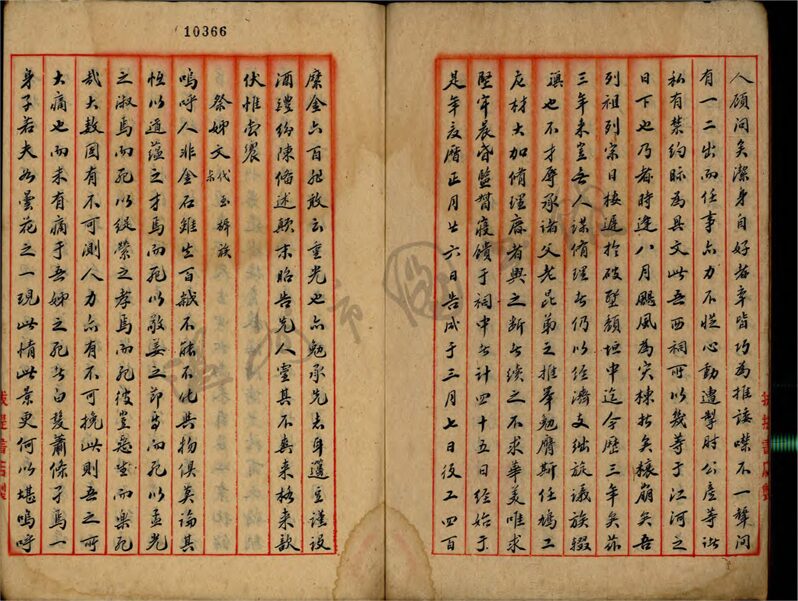 10366
人顧問矣潔身自好者率皆巧為推諉噤不一聲間
有一二出而任事亦力不從心動遭掣肘公產等諸
私有禁約眎為具文此吾西祠所以幾等于江河之
日下也乃者時逢八月颶風為灾棟折矣榱崩矣吾
列祖列宗日棲遲於破壁頹垣中迄今歷三年矣茲
三年來豈吾人謀脩理者仍以經濟支絀旋議旋輟
也不才辱承諸父老昆弟之推舉勉膺斯任鳩工
庀材大加脩理腐者興之斷者續之不求華美唯求
堅牢晨昏監督寢饋于祠中者計四十五日經始于
是年夏曆正月廿六日告成于三月七日役工四百
糜金六百胆敢云重光也亦勉承先志耳邇豆謹設
酒醴紛陳脩述顛末昭告先人靈其不爽來格來歆
伏惟尚饗
祭姊文代玉樨族
嗚呼人非金石雖生百歲不能不化與物俱莫論其
恒以道蘊之才焉而死以敬姜之節焉而死以孟光
之淑焉而死以緹縈之孝焉而死彼豈惡生而樂死
哉大數固有不可測人力亦有不可挽此則吾之所
大痛也而未有痛于吾姊之死者白髮蕭條孑焉一
身子若夫如曇花之一現此情此景更何以堪嗚呼